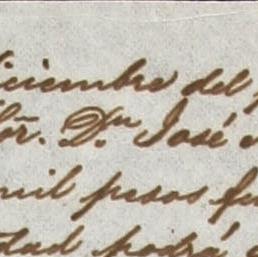 diciembre del
Sõr. Dn José
mil pesos
podrá